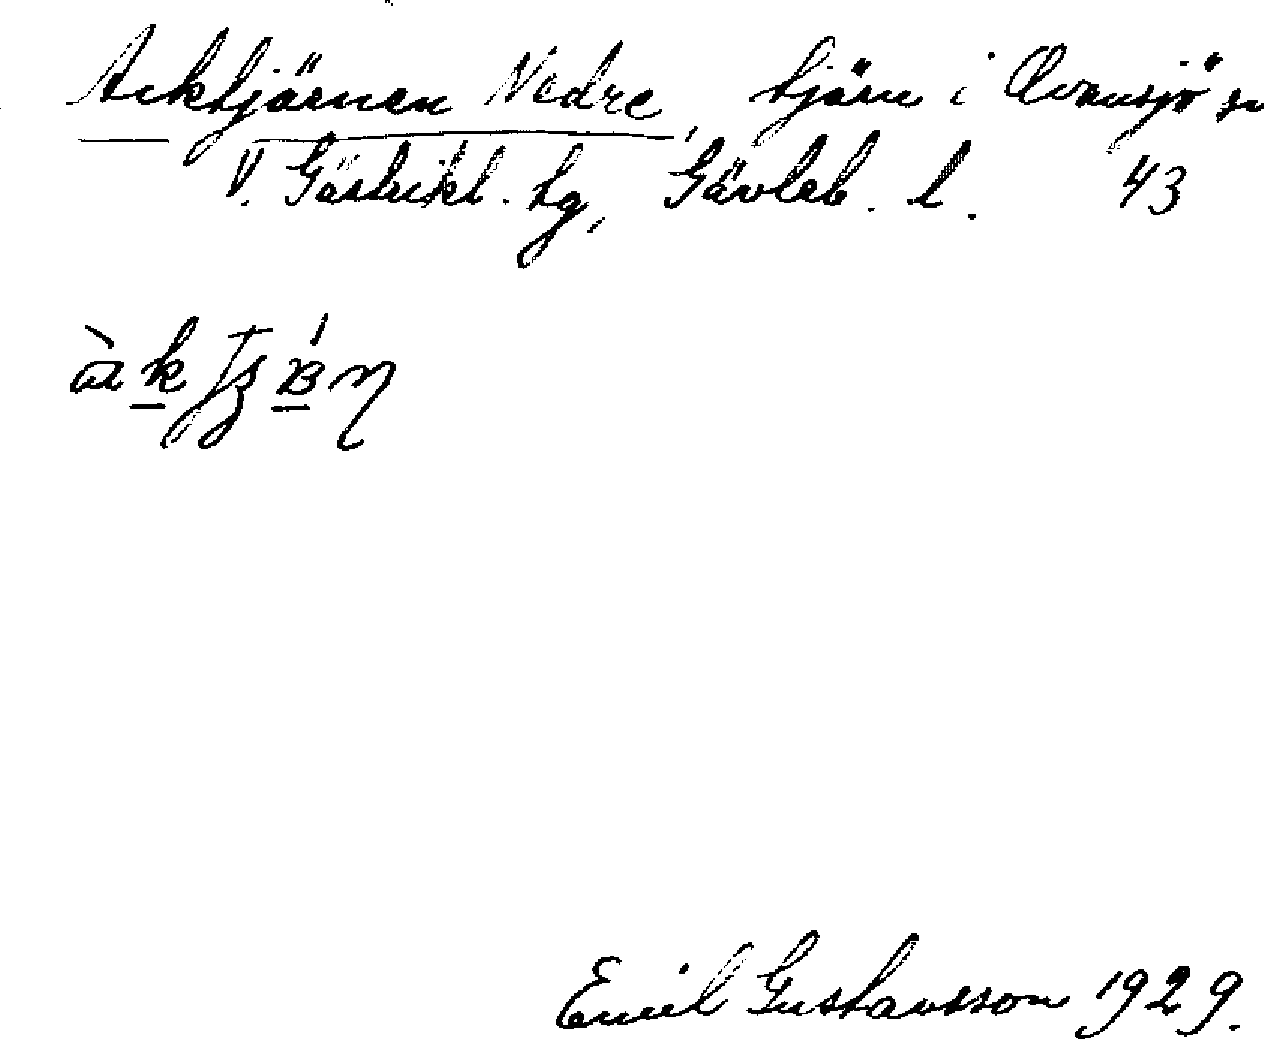 Arktjärnen Nedre, tjärn i Ovansjö sn
V. Gästrikl. tg, Gävleb. l. 43
Emil Gustavsson 1929.